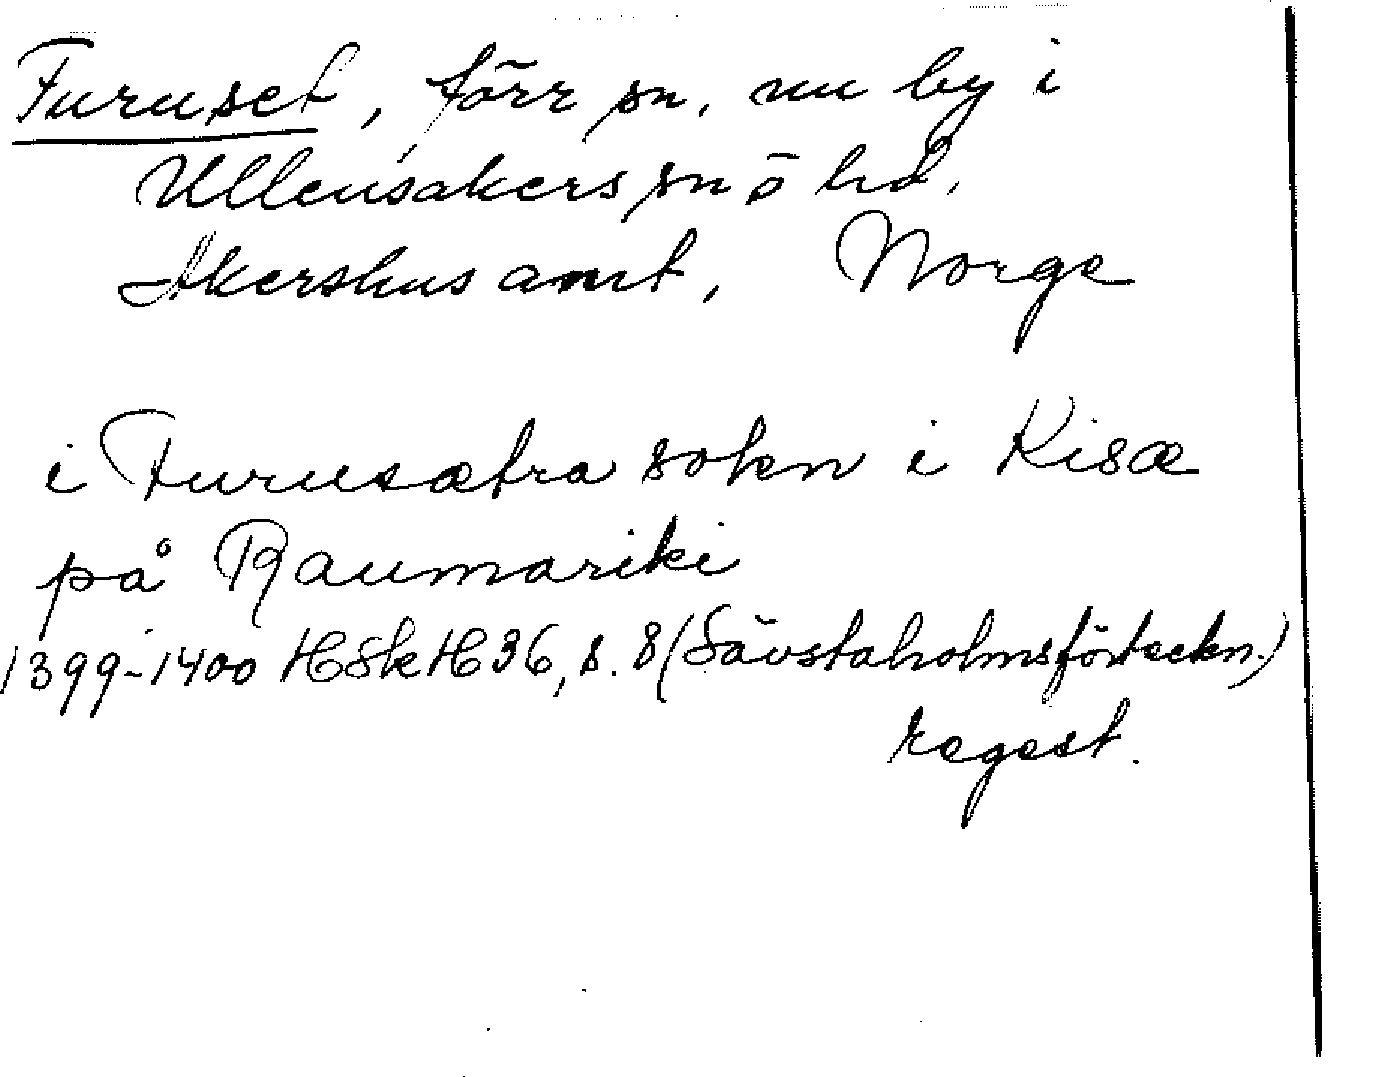 Furuset, förr sn, nu by i
Ullensakers sn o hd,
Akershus amt, Norge
i Furusætra sokn i Kisæ
på Raumariki
1399-1400 HSkH 36, s. 8 (Sävstaholmsförteckn.)
regest.